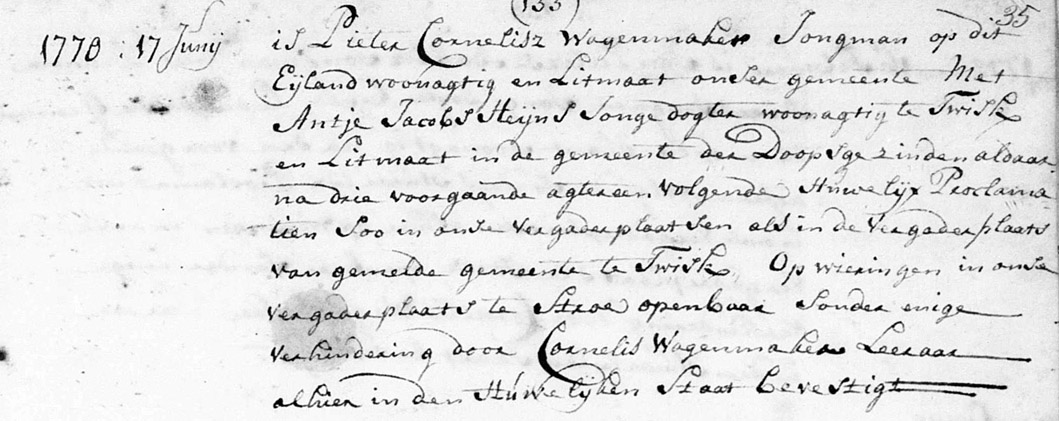 (133) 35
1770 : 17 Junij is Pieter Cornelisz Wagenmaker Jongman op dit
Eijland woonagtig en Litmaat onser gemeente Met
Antje Jacobs Heijns Jonge dogter woonagtig te Twisk
en Litmaat in de gemeente der Doopsgezinden aldaar
na drie voorgaande agtereen volgende Huwelijx Proclama
tien Soo in onse vergaderplaatsen als in de vergaderplaats
van gemelde gemeente te Twisk Op wieringen in onse
vergaderplaats te Stroe openbaar Sonder enige
verhindering door Cornelis Wagenmaker Leeraar
alhier in den Huwelijken Staat bevestigt